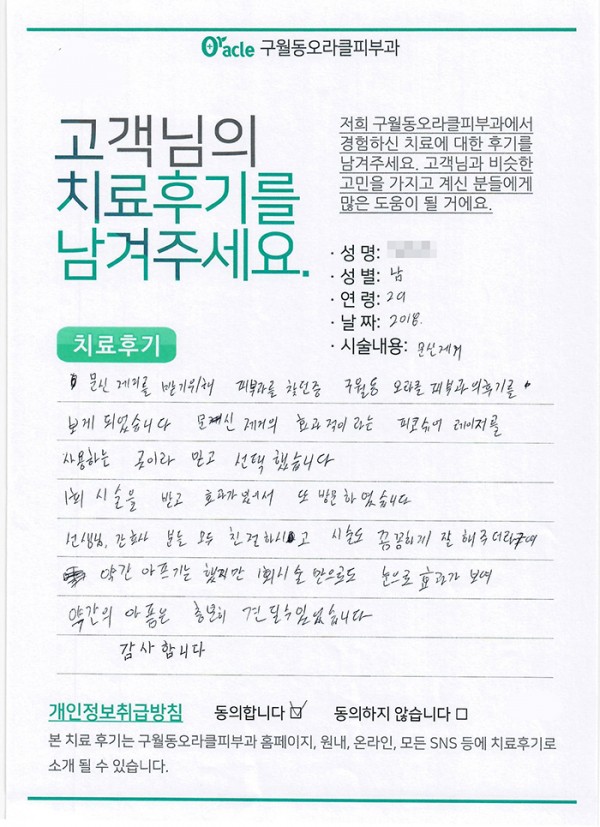 Oracle 구월동오라클피부과
고객님의
치료후기를
남겨주세요.
저희 구월동오라클피부과에서
경험하신 치료에 대한 후기를
남겨주세요. 고객님과 비슷한
고민을 가지고 계신 분들에게
많은 도움이 될 거에요.
· 성 명:
· 성 별: 남
· 연 령: 29
· 날 짜: 2018.
· 시술내용: 문신제거
치료후기
문신 제거를 받기위해 피부과를 찾던중 구월동 오라클 피부과의 후기를
보게 되었습니다 문신 제거의 효과적이라는 피코슈어 레이저를
사용하는 곳이라 믿고 선택했습니다
1회 시술을 받고 효과가 있어서 또 방문하였습니다
선생님, 간호사 분들 모두 친절하시고 시술도 꼼꼼하게 잘 해주더라구여
약간 아프기는 했지만 1회시술 만으로도 눈으로 효과가 보여
약간의 아픔은 충분히 견딜수있었습니다
감사합니다
개인정보취급방침 동의합니다 ☑ 동의하지 않습니다 □
본 치료 후기는 구월동오라클피부과 홈페이지, 원내, 온라인, 모든 SNS 등에 치료후기로
소개 될 수 있습니다.